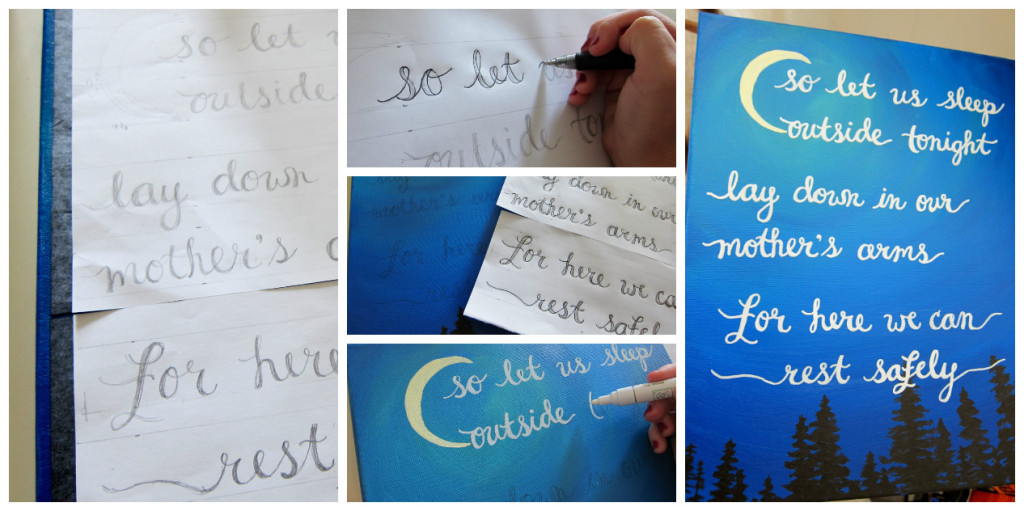 so let
outside
lay down
mother's a
For here
rest
so let us
outside to
y down in our
mother's arms
For here we ca
rest safely
mother's
for her
so let us sleep
outside t
down in our
so let us sleep
outside tonight
lay down in our
mother's arms
For here we can
rest safely